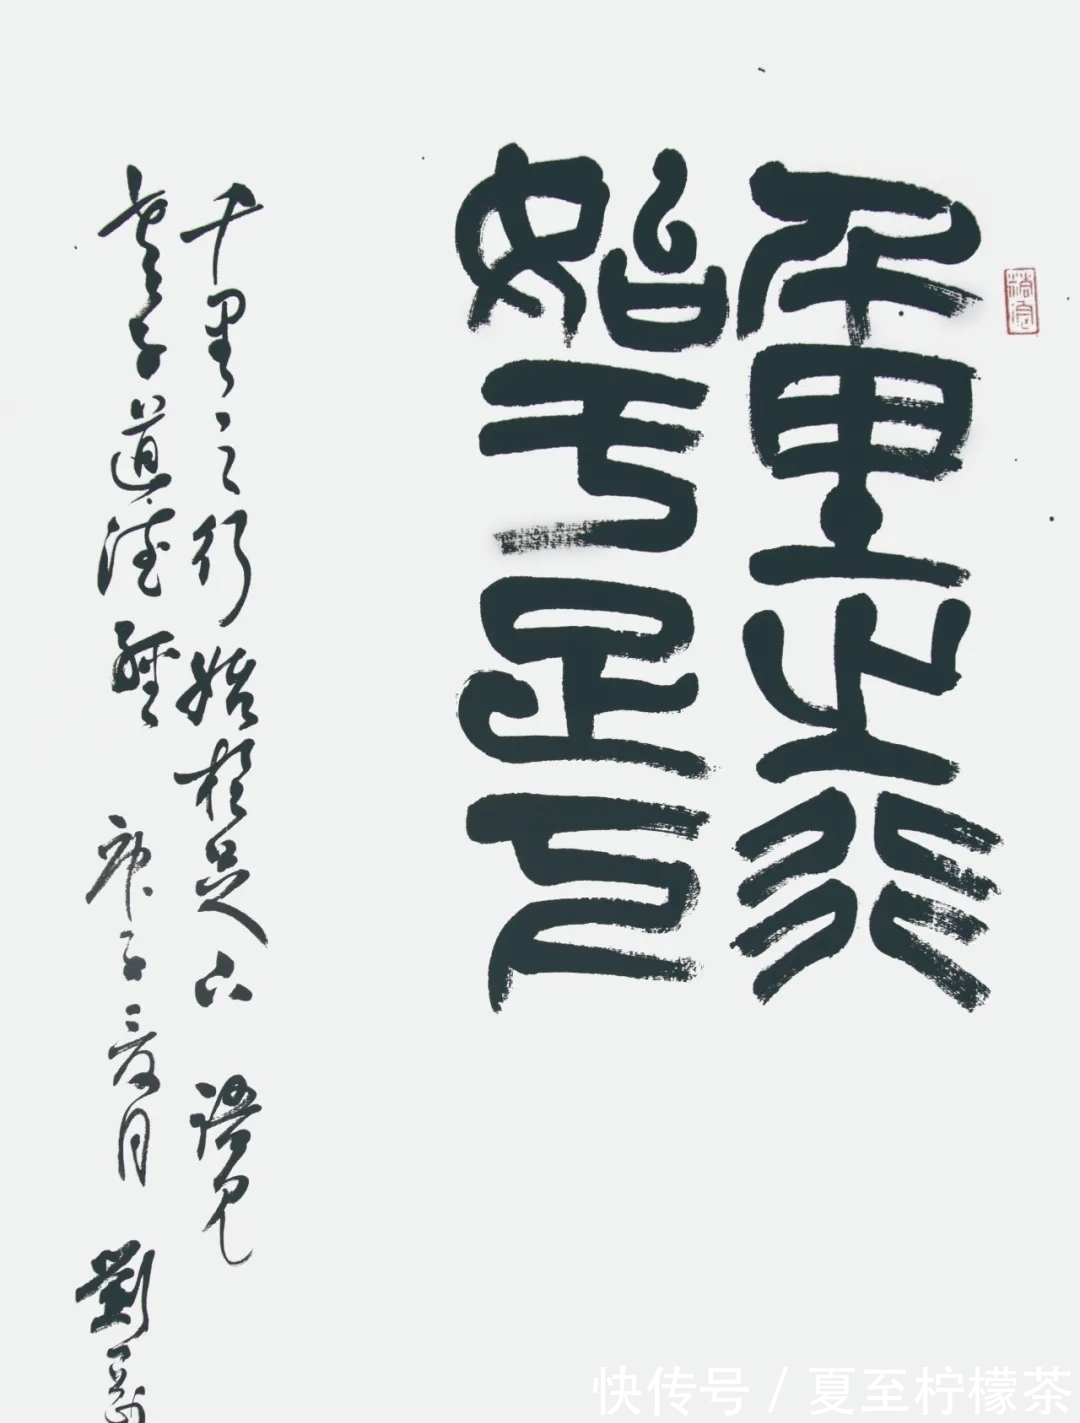 千里之行
始于足下
千里之行始於足下 語見
老子道德經 庚子三月 劉
快传号 / 夏至柠檬茶